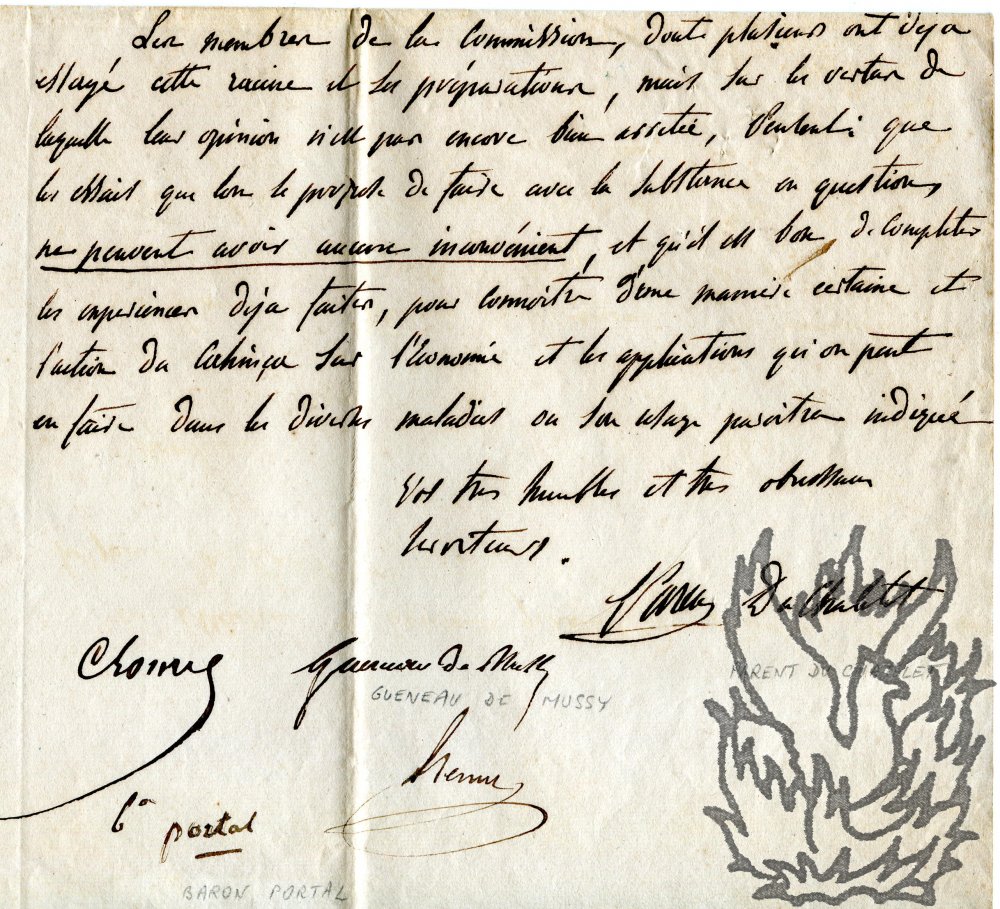 Les membres de la Commission, dont plusieurs ont deja
essayé cette racine et ses préparations, mais sur les vertus de
laquelle leur opinion n'est pas encore bien assetée, Pensent que
les essais que l'on se propose de faire avec la substance en question,
ne peuvent avoir aucun inconvénient, et qu'il est bon de completer
les experiences deja faites, pour connoitre d'une maniere certaine et
l'action du Cahinça sur l'Economie et les applications qu'on peut
en faire dans les diverses maladies ou son usage paroitra indiqué
Vos tres humbles et tres obeissans
Serviteurs.
Parent Du Chatelet
Chomel Gueneau de Mussy
PARENT DU CHATELET
GUENEAU DE MUSSY
Bon portal
BARON PORTAL